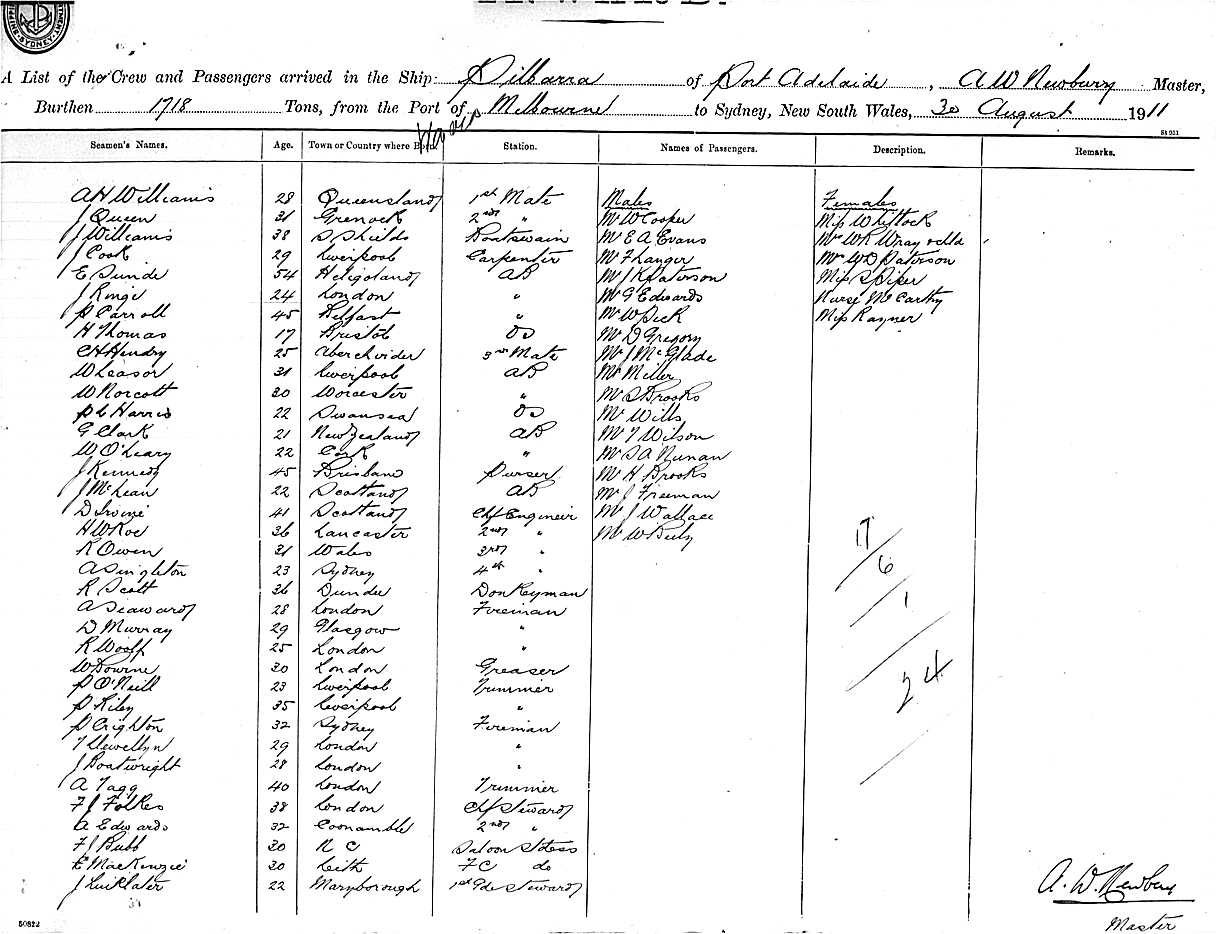 INWARD.
SYDNEY
A List of the Crew and Passengers arrived in the Ship: Pilbarra of Port Adelaide, A W Newbury Master,
Burthen 1718 Tons, from the Port of Melbourne to Sydney, New South Wales, 30 August 1911
St 931
Seamen's Names. Age. Town or Country where Born Station. Names of Passengers. Description. Remarks.
A H Williams 28 Queensland 1st Mate Males Females
J Queen 31 Grenock 2nd " Mr W Cooper Miss Whittock
J Williams 38 S Shields Boatswain Mr E A Evans Mrs W R Wray & chld
J Cook 29 Liverpool Carpenter Mr F Langer Mrs W D Paterson
E Sunde 54 Heligoland AB Mr J K Paterson Miss S Piper
J Ringe 24 London " Mr G Edwards Nurse McCarthy
P Carroll 45 Belfast " Mr W Dick Miss Rayner
H Thomas 17 Bristol OS Mr D Gregory
C H Hendry 25 Aberchider 3rd Mate Mr J McGlade
W Leason 31 Liverpool AB Mr Miller
W Norcott 30 Worcester " Mr S Brooks
P C Harris 22 Swansea OS Mr Wills
G Clark 21 New Zealand AB Mr T Wilson
W O'Leary 22 Cork " Mr S A Nunan
J Kennedy 45 Brisbane Purser Mr H Brooks
J McLean 22 Scotland AB Mr J Freeman
D Irvine 41 Scotland Chf Engineer Mr J Wallace
H W Roe 36 Lancaster 2nd " Mr W
R Owen 31 Wales 3rd " 17
A Singleton 23 Sydney 4th " 6
R Scott 36 Dundee Donkeyman
A Seaward 28 London Fireman 1
D Murray 29 Glasgow "
R Woolf 25 London "
W Bourne 30 London Greaser
P O'Neill 23 Liverpool Trimmer 24
P Riley 35 Liverpool "
P Crighton 32 Sydney Fireman
T Llewellyn 29 London "
J Boatwright 28 London "
A Tagg 40 London Trimmer
F J Folkes 38 London Chf Steward
A Edwards 32 Coonamble 2nd "
F J Bubb 30 N C Saloon Stdess
E MacKenzie 30 Leith F C do
J Luiklater 22 Maryborough 1st Gde Steward
A. W. Newbury
50822
Master